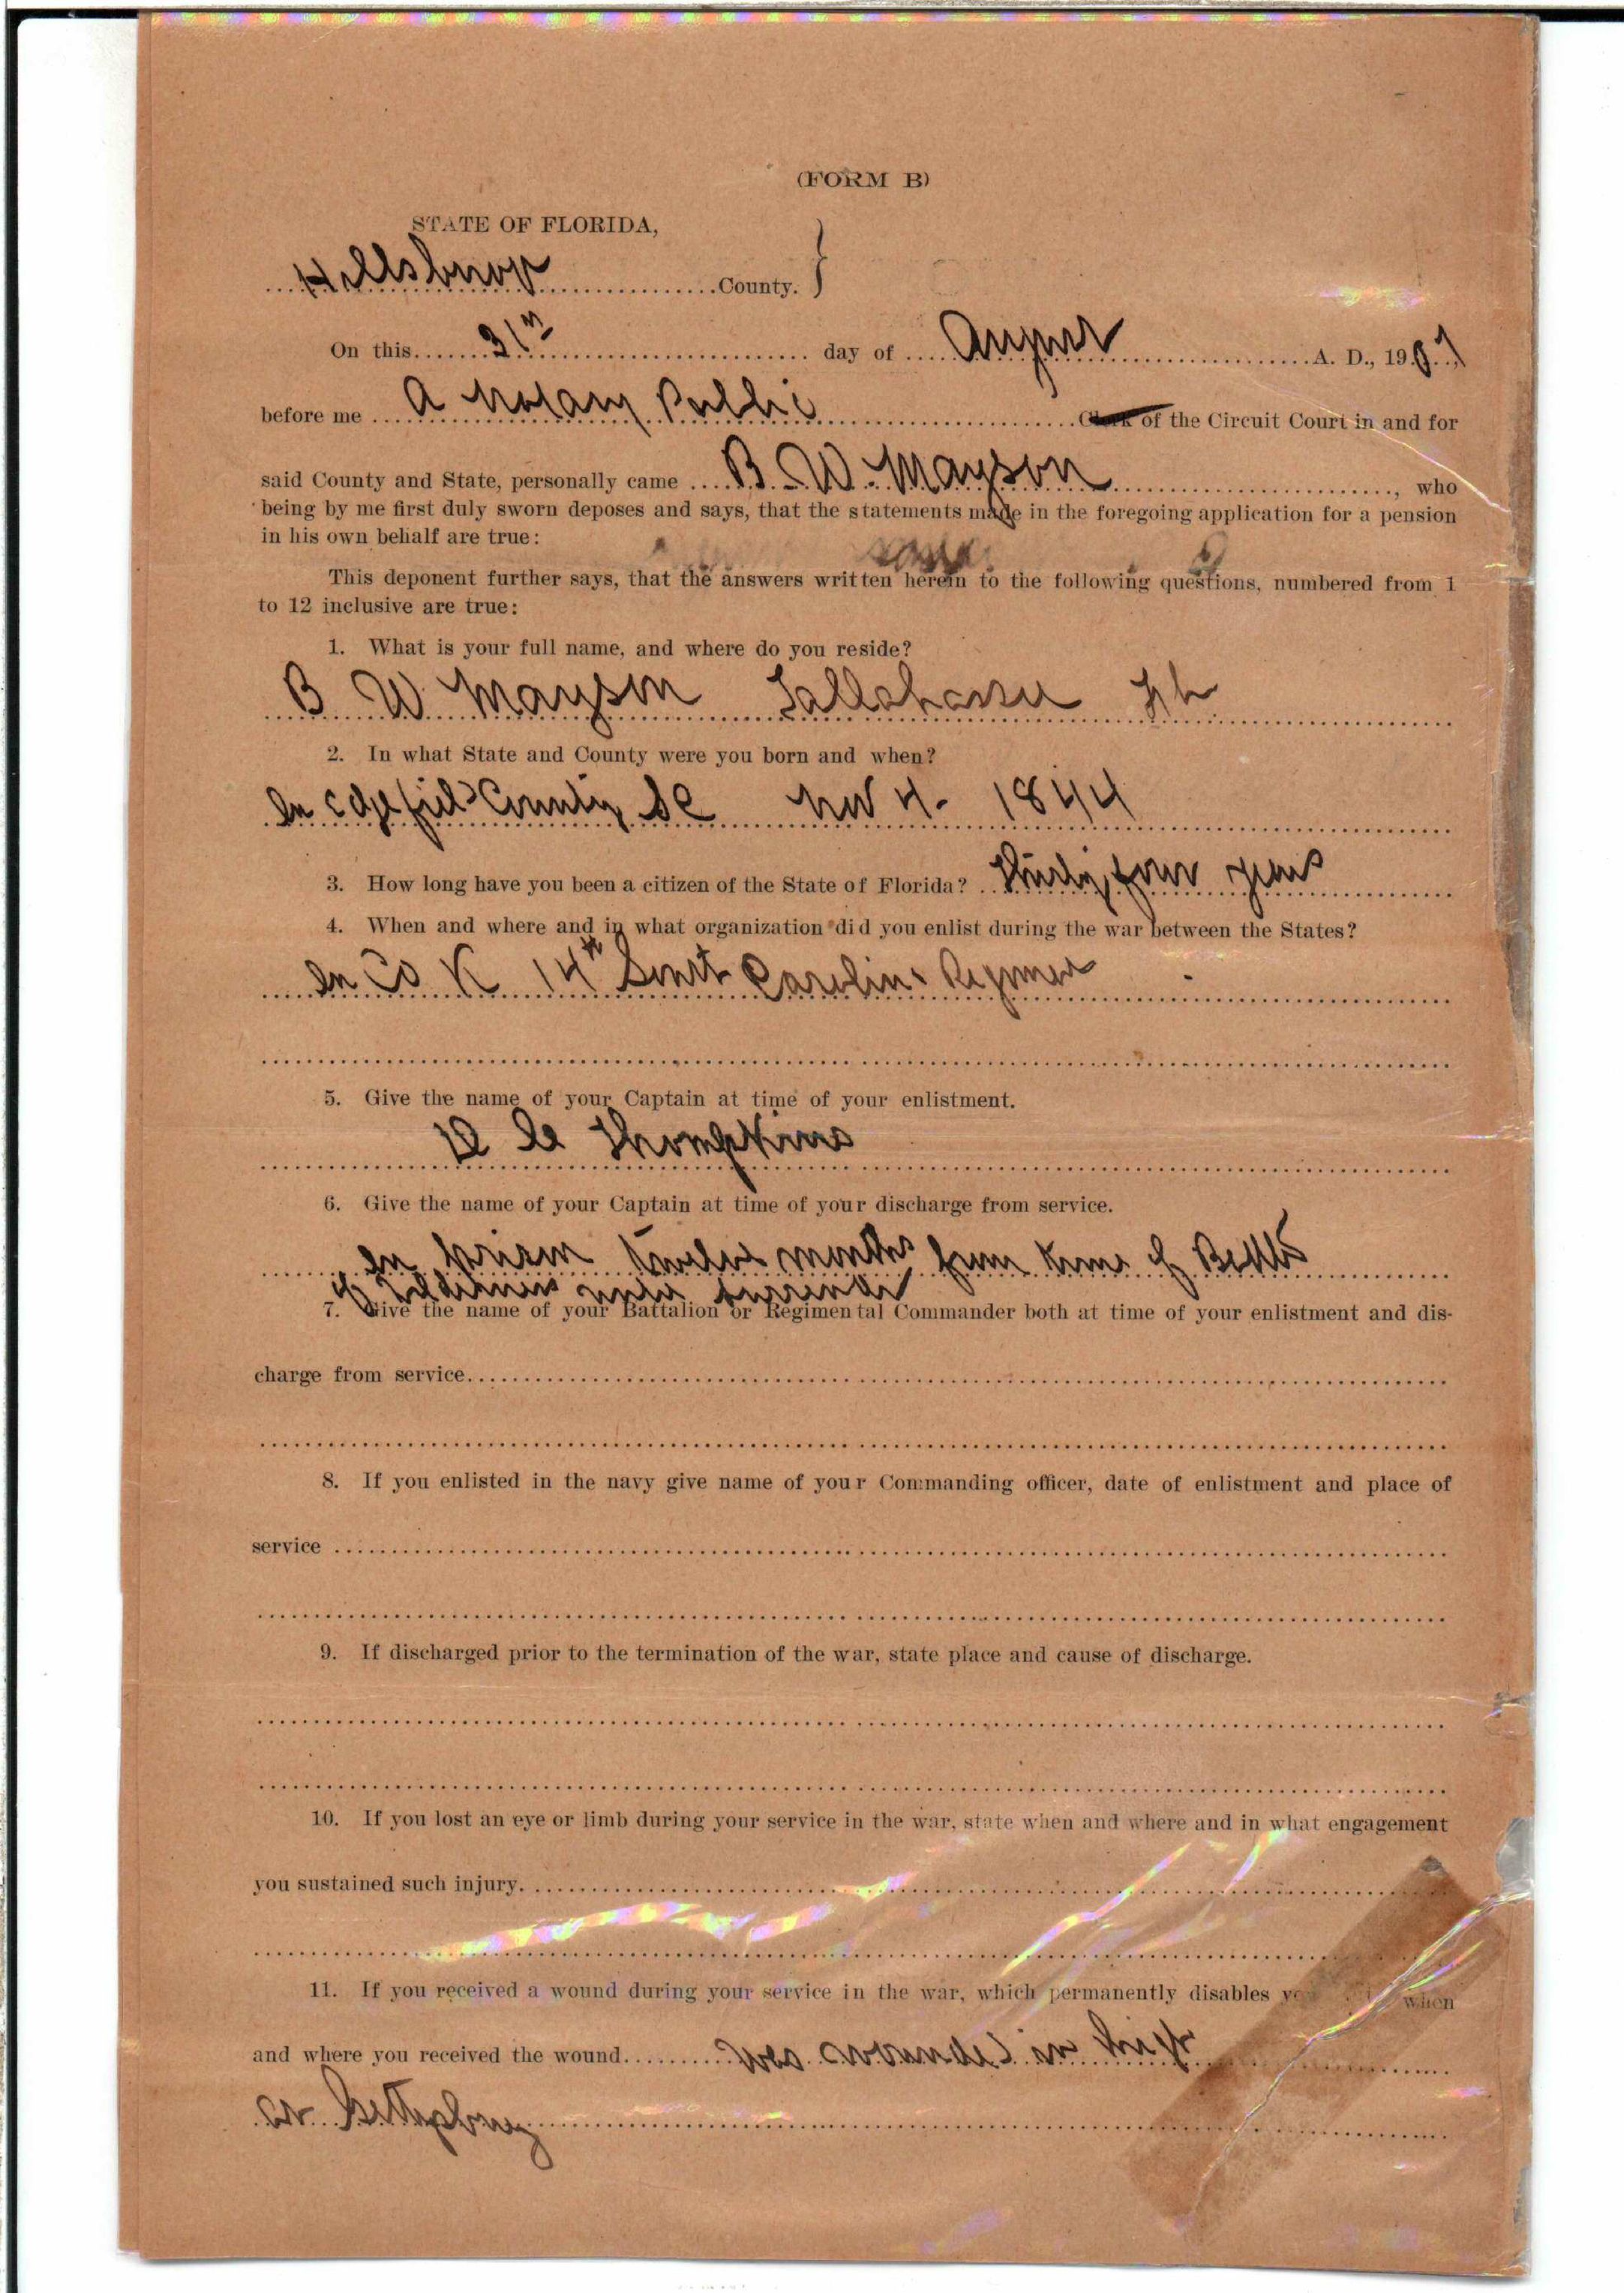 (FORM B)
STATE OF FLORIDA,
Hillsboro County.
On this 31st day of August A. D., 1907,
before me A Notary Public Clerk of the Circuit Court in and for
said County and State, personally came B. W. Mayson, who
being by me first duly sworn deposes and says, that the statements made in the foregoing application for a pension
in his own behalf are true:
This deponent further says, that the answers written herein to the following questions, numbered from 1
to 12 inclusive are true:
1. What is your full name, and where do you reside?
B W Mayson Tallahassee Fla
2. In what State and County were you born and when?
In Edgefield County SC Nov 4 - 1844
3. How long have you been a citizen of the State of Florida? Thirty four years
4. When and where and in what organization did you enlist during the war between the States?
In Co K 14th South Carolina Regiment
5. Give the name of your Captain at time of your enlistment.
Thompkins
6. Give the name of your Captain at time of your discharge from service.
In prison twelve months from time of Battle
of Wilderness until surrender
7. Give the name of your Battalion or Regimental Commander both at time of your enlistment and dis-
charge from service
8. If you enlisted in the navy give name of your Commanding officer, date of enlistment and place of
service
9. If discharged prior to the termination of the war, state place and cause of discharge.
10. If you lost an eye or limb during your service in the war, state when and where and in what engagement
you sustained such injury.
11. If you received a wound during your service in the war, which permanently disables when
and where you received the wound was wounded in hip
at Gettysburg